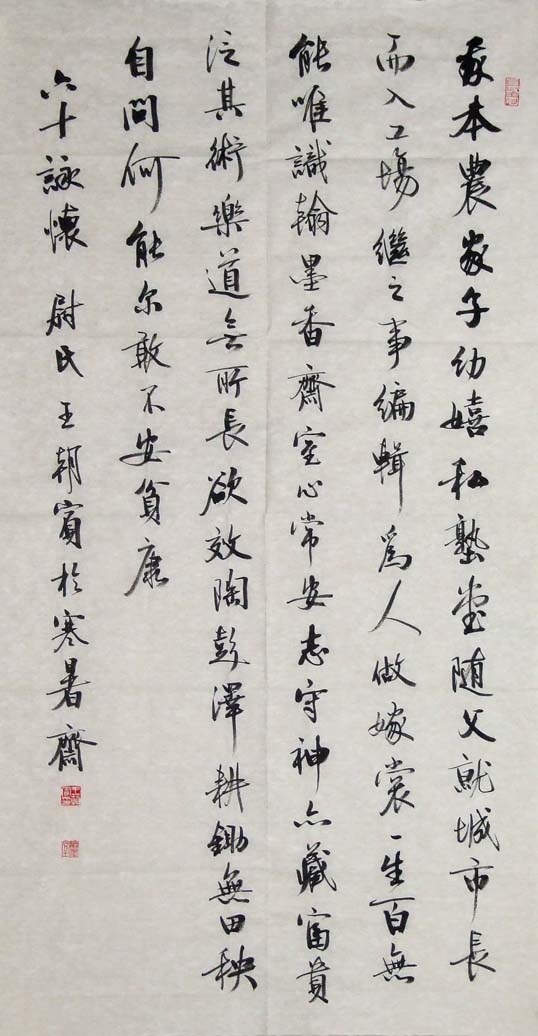 我本農家子幼嬉私塾堂随父就城市長
而入工場繼之事編輯爲人做嫁裳一生百無
能唯識翰墨香齋室心常安志守神亦藏富貴
泛其術樂道无所長欲效陶彭澤耕鋤無田秧
自問何能尔敢不安貧康
六十詠懷 尉氏王朝賓於寒暑齋